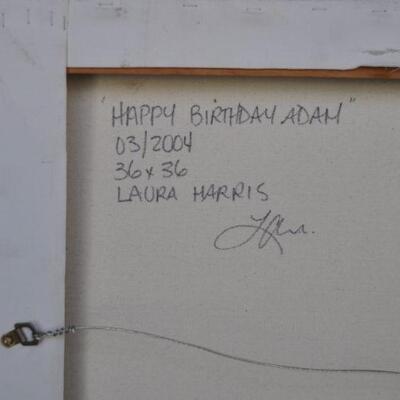 "HAPPY BIRTHDAY ADAM"
03/2004
36x36
LAURA HARRIS